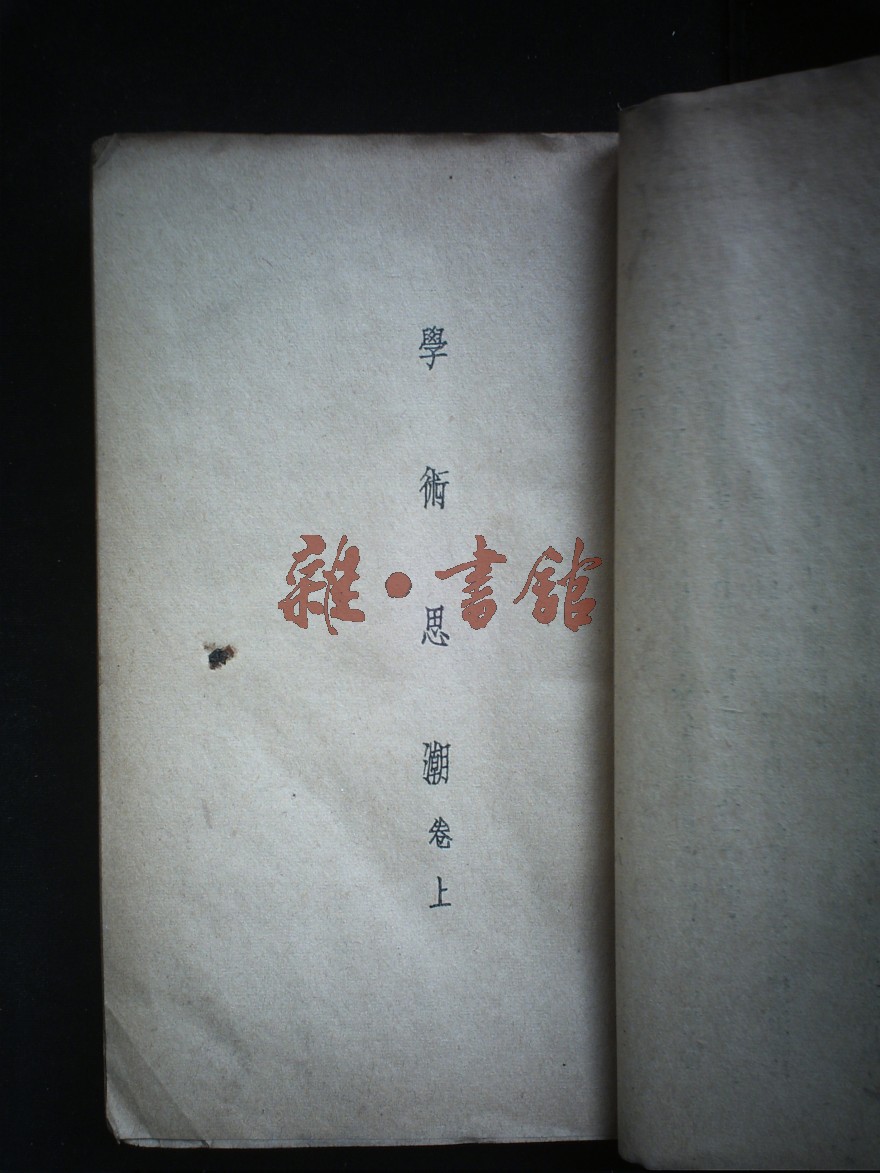 學術思潮卷上
雜·書館